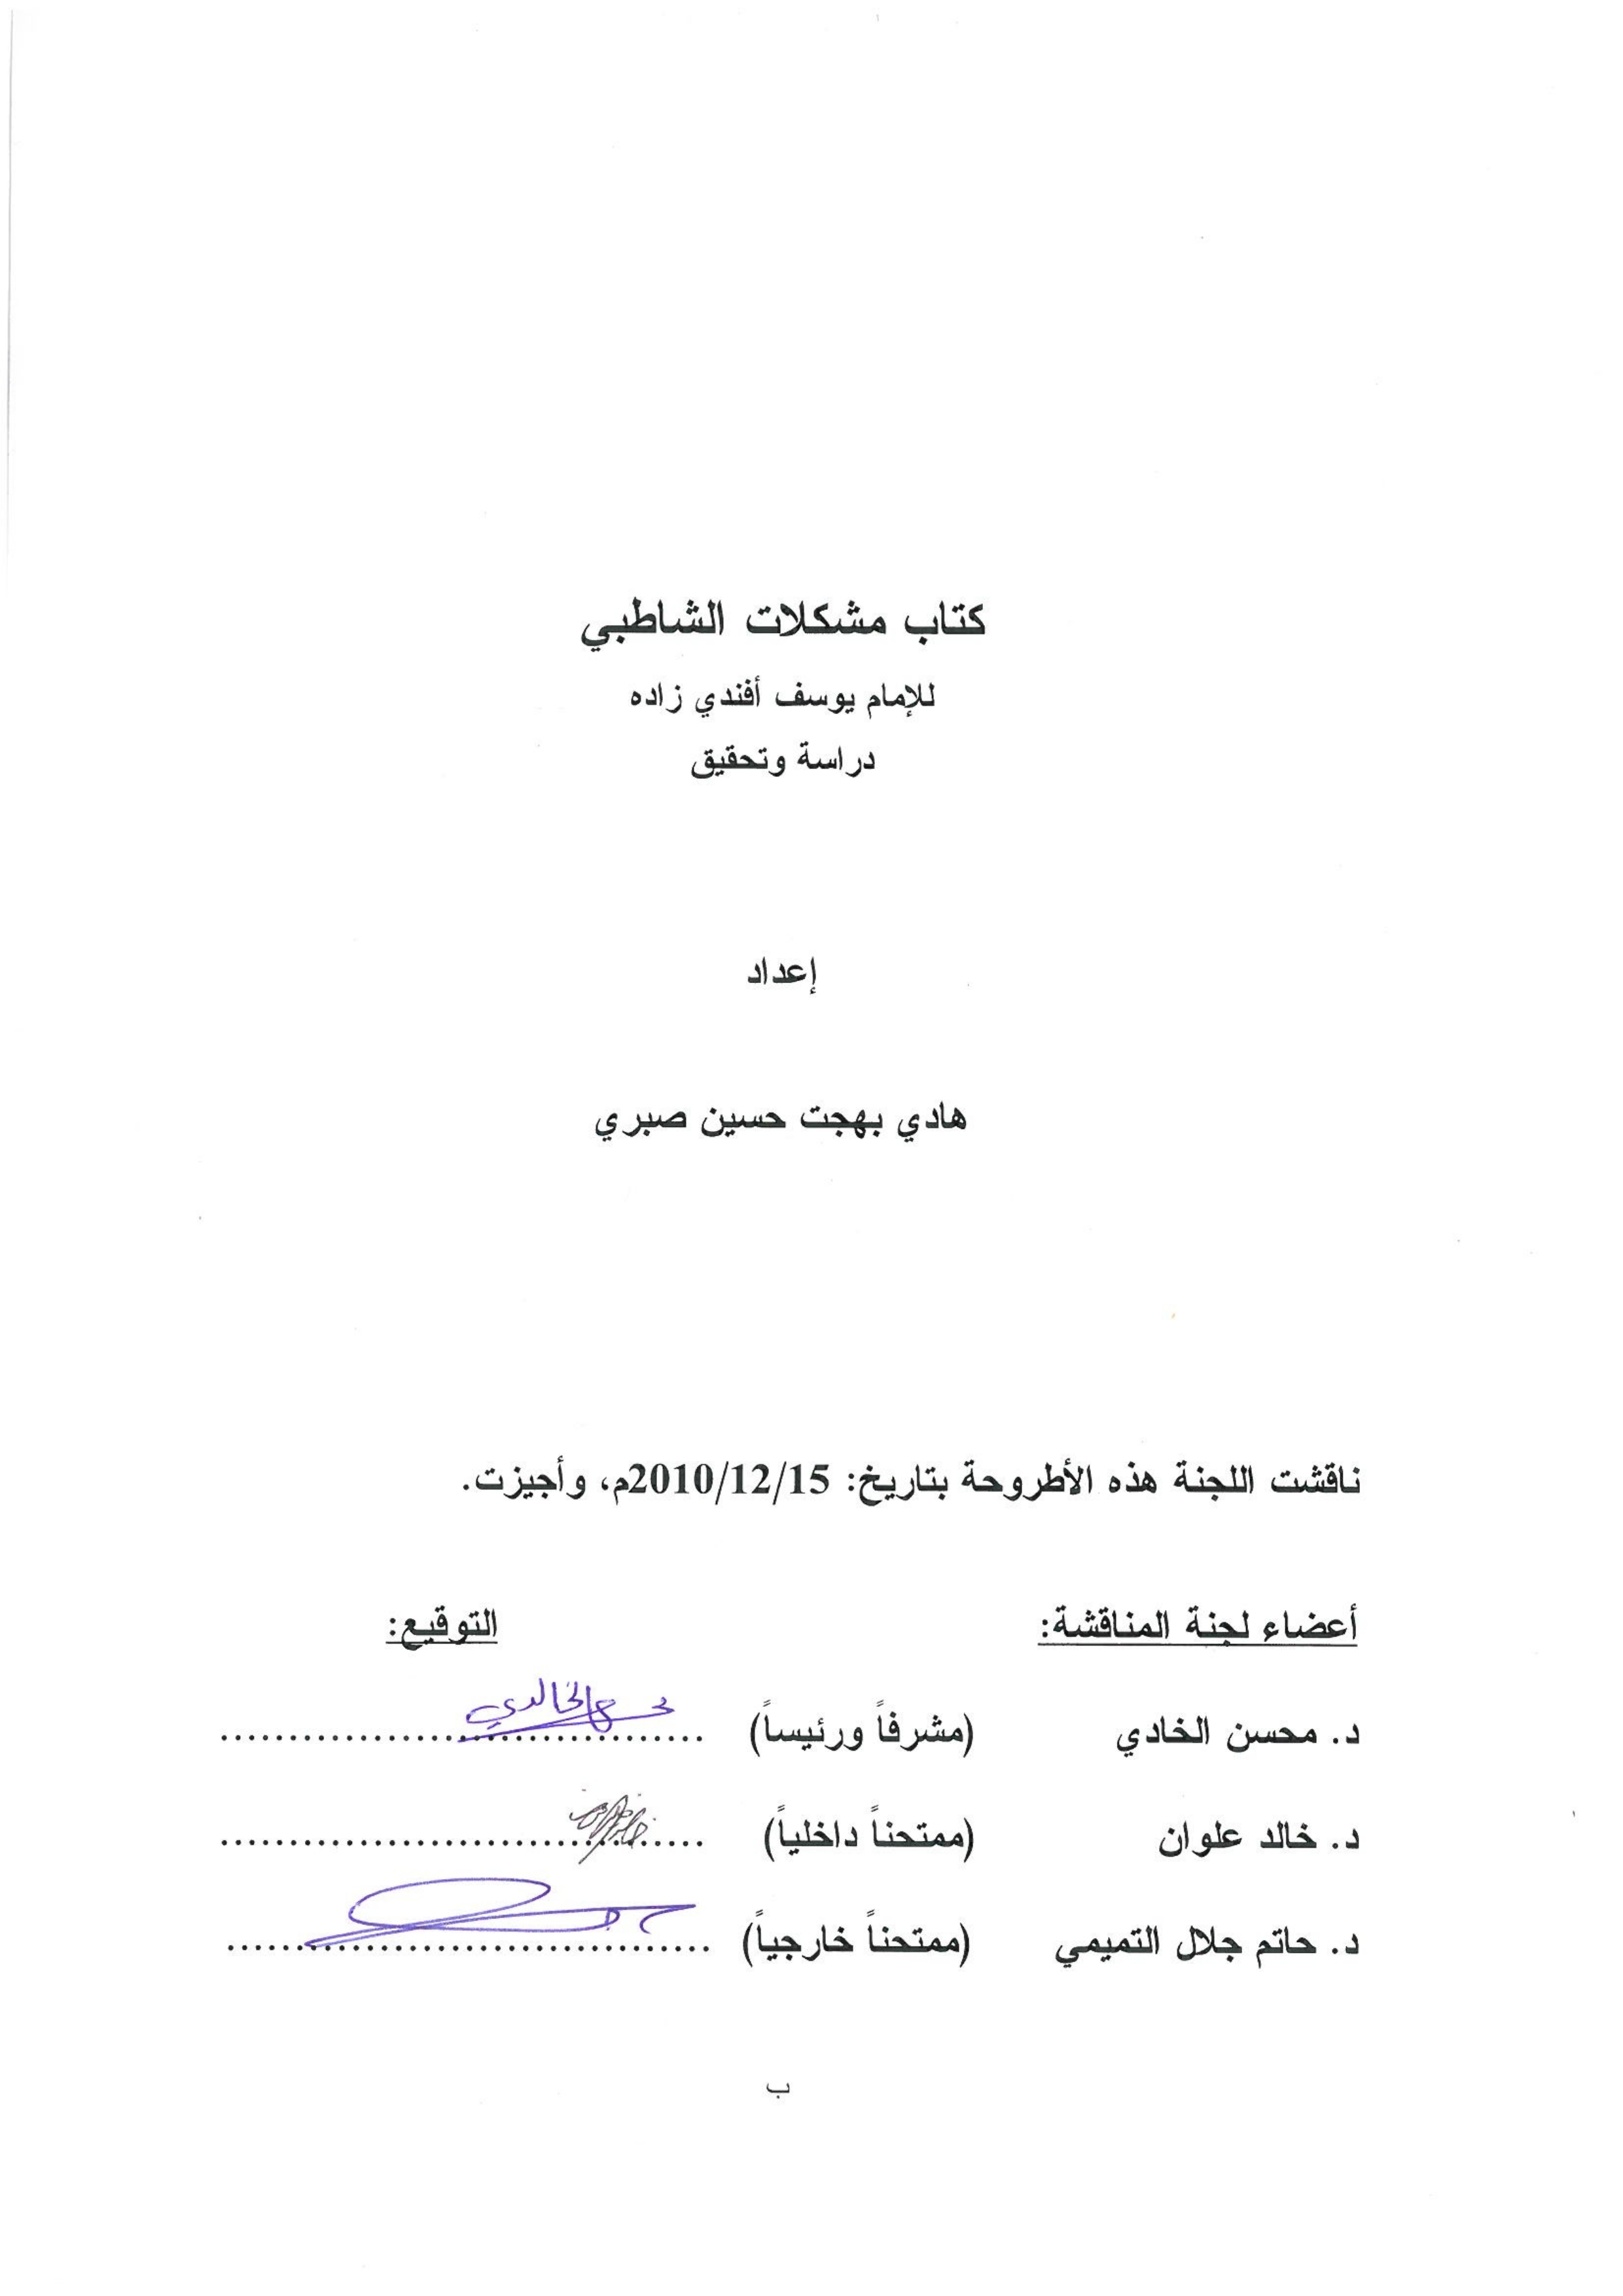 كتاب مشكلات الشاطبي
للإمام يوسف أفندي زاده
دراسة وتحقيق
إعداد
هادي بهجت حسين صبري
ناقشت اللجنة هذه الأطروحة بتاريخ: 2010/12/15م، وأجيزت.
أعضاء لجنة المناقشة: التوقيع:
د. محسن الخادي (مشرفاً ورئيساً) .................................... الخالدي
د. خالد علوان (ممتحناً داخلياً) ....................................
د. حاتم جلال التميمي (ممتحناً خارجياً) ....................................
ب